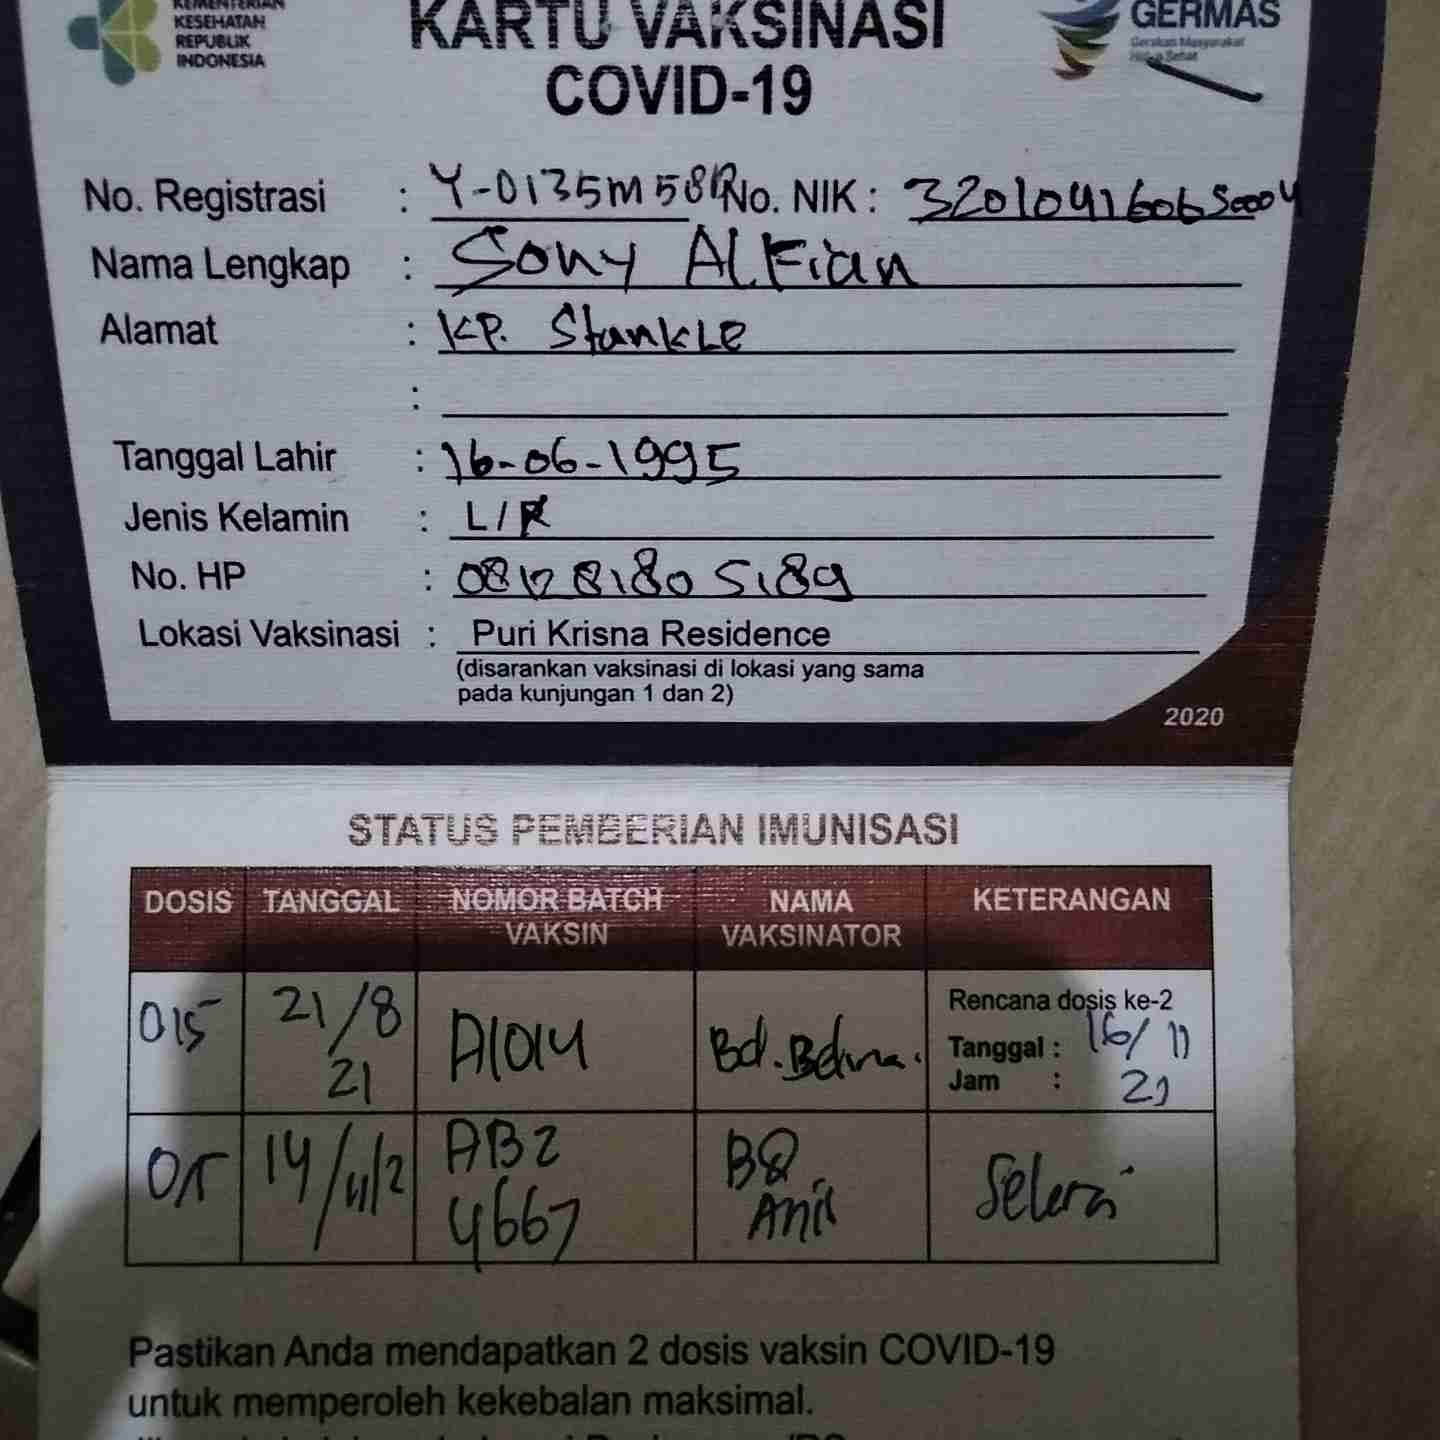 KEMENTERIAN
KESEHATAN
REPUBLIK
INDONESIA
KARTU VAKSINASI
COVID-19
GERMAS
Gerakan Masyarakat
Hidup Sehat
No. Registrasi : Y-0135M58R No. NIK : 3201041606950004
Nama Lengkap : Sony Al.Fian
Alamat : KP.
:
Tanggal Lahir : 16-06-1995
Jenis Kelamin : L/P
No. HP : 081281805189
Lokasi Vaksinasi : Puri Krisna Residence
(disarankan vaksinasi di lokasi yang sama
pada kunjungan 1 dan 2)
2020
STATUS PEMBERIAN IMUNISASI
DOSIS TANGGAL NOMOR BATCH VAKSIN NAMA VAKSINATOR KETERANGAN
015 21/8 21 A1014 Bd. Rencana dosis ke-2
Tanggal : 16/11
Jam : 21
0,5 14/11/2 AB2 4667 BQ Anis Selesai
Pastikan Anda mendapatkan 2 dosis vaksin COVID-19
untuk memperoleh kekebalan maksimal.